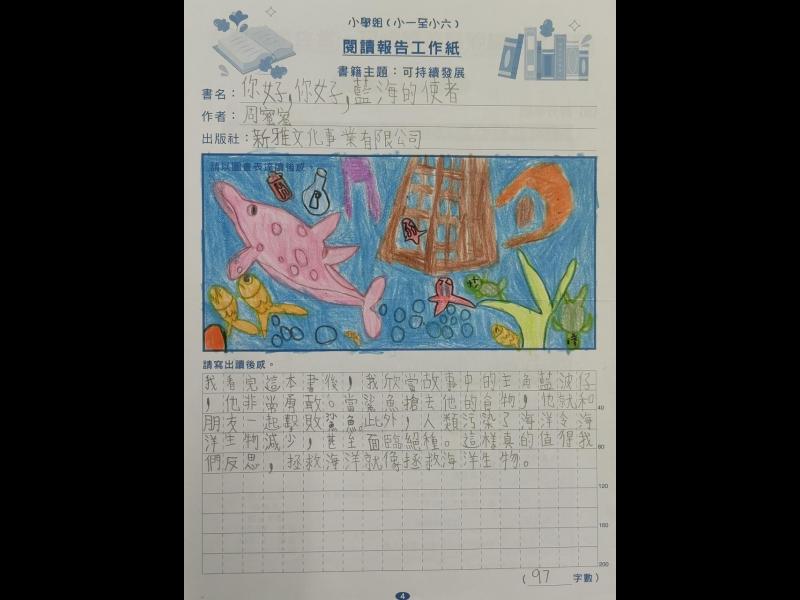 小學組（小一至小六）
閱讀報告工作紙
書籍主題：可持續發展
書名：你好，你好，藍海的使者
作者：周蜜蜜
出版社：新雅文化事業有限公司
請以圖畫表達讀後感。
請寫出讀後感。
我看完這本書後，我欣賞故事中的主角藍波仔
，他非常勇敢。當鯊魚搶去他的食物，他就和
40
朋友一起擊敗鯊魚。此外，人類污染了海洋令海
洋生物減少，甚至面臨絕種。這樣真的值得我
80
們反思，拯救海洋就像拯救海洋生物。
120
160
200
（97字數）
4